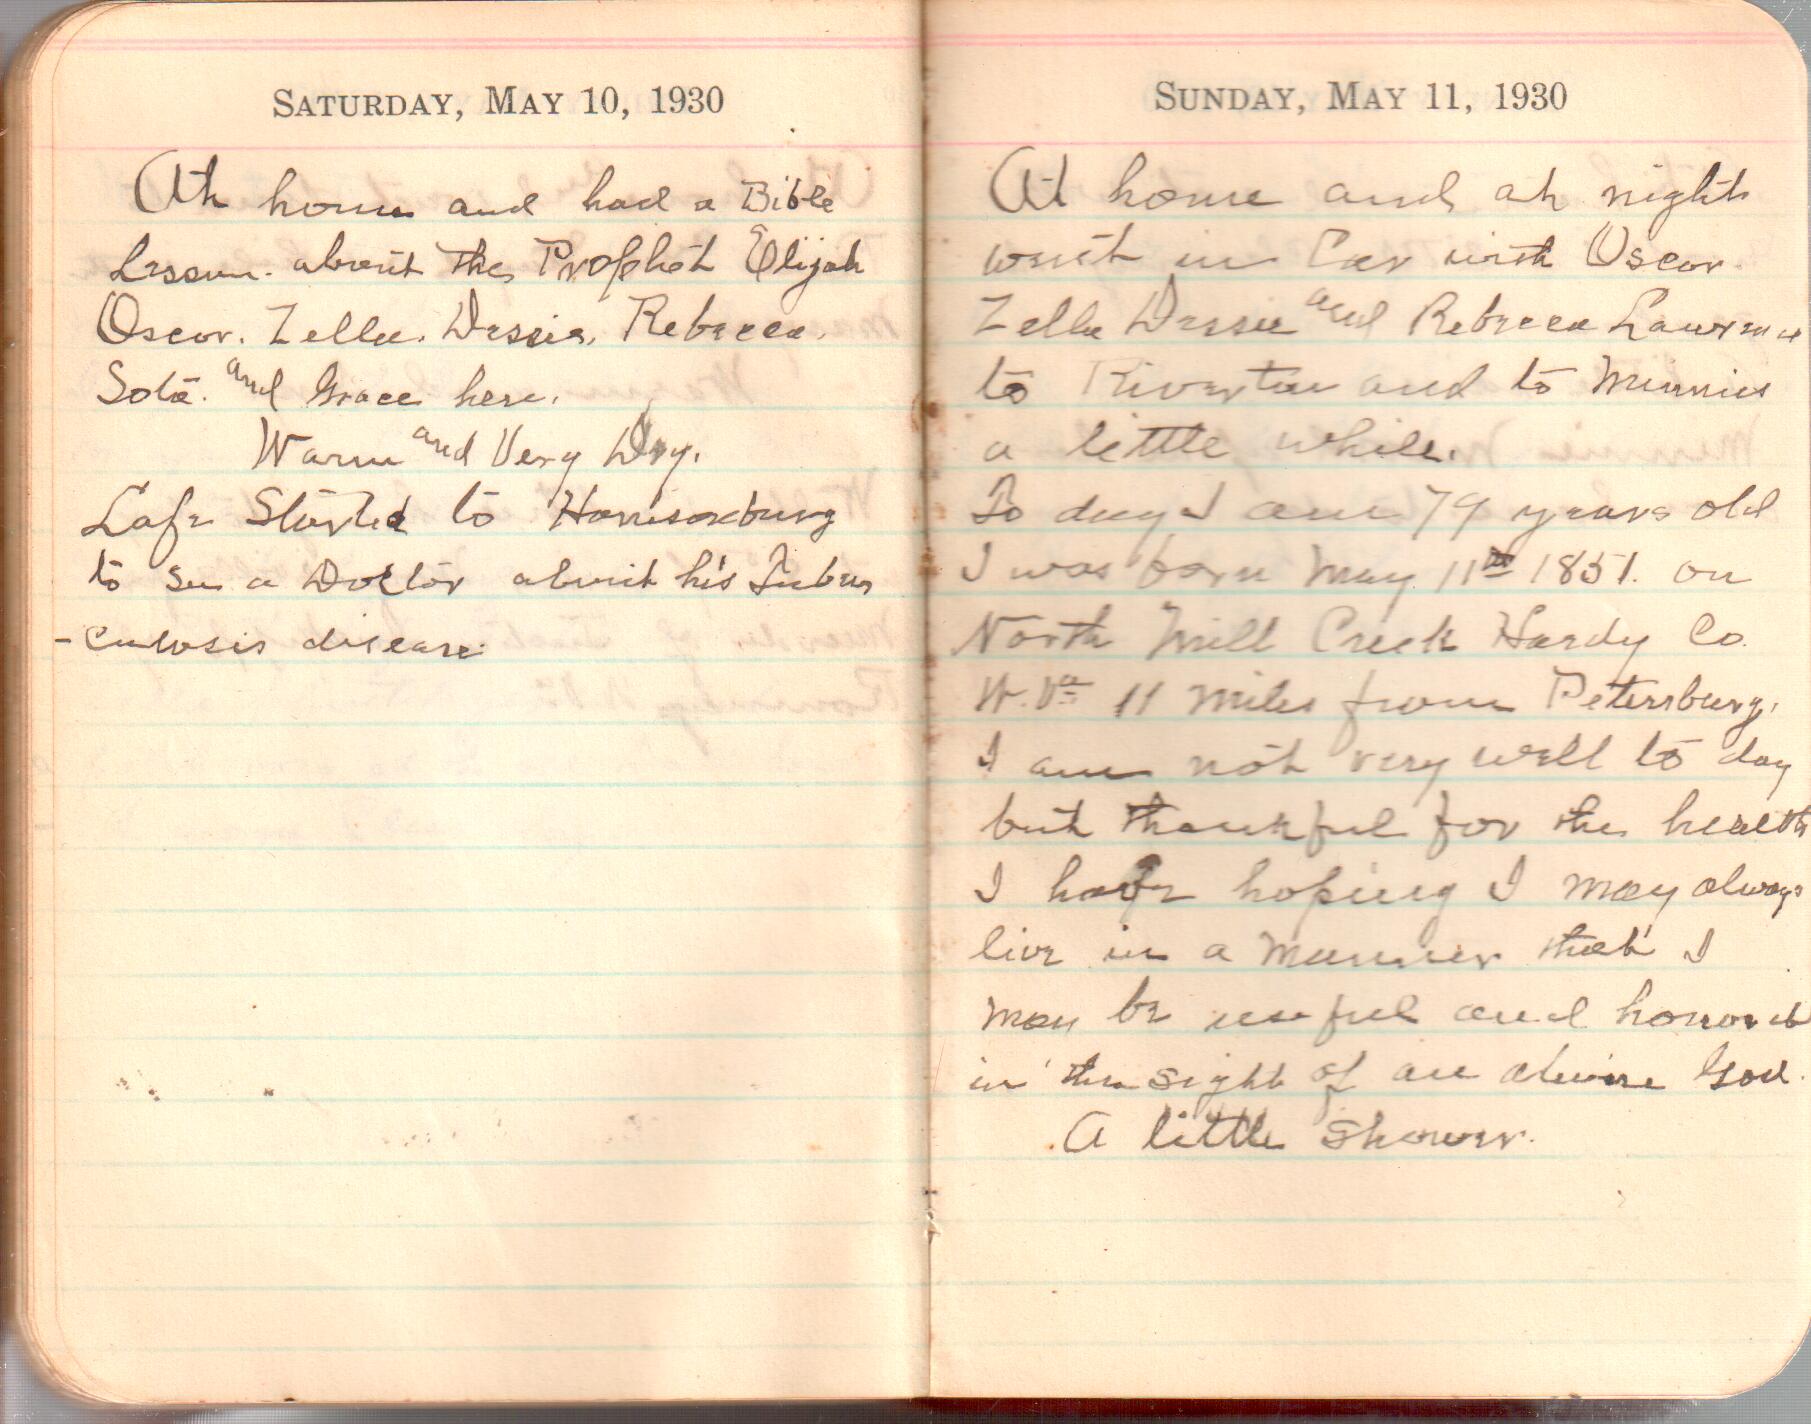 SATURDAY, MAY 10, 1930
At home and had a Bible
Lesson. about the Prophet Elijah
Oscar. Zella. Dessie. Rebecca.
Sota. and Grace here.
Warm and Very Dry.
Lafe Started to Harrisonburg
to see a Doctor about his Tuber
-culosis disease.
SUNDAY, MAY 11, 1930
At home and at night
went in Car with Oscar.
Zella Dessie and Rebecca Lawrence
to Riverton and to Minnies
a little while.
To day I am 79 years old
I was born May 11th 1851. on
North Mill Creek Hardy Co.
W. Va 11 miles from Petersburg.
I am not very well to day
but thankful for the health
I have hoping I may always
live in a manner that I
may be useful and honored
in the sight of an God.
A little Shower.